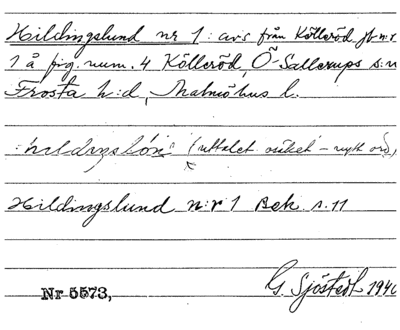 Hildingslund nr 1: avs från Kölleröd jb-n:r
1 å frg. num. 4 Kölleröd, Ö-Sallerups s:n
Frosta h:d, Malmöhus l.
(uttalet osäket - nytt ord)
Hildingslund n:r 1 Bek s. 11
Nr 5573, G. Sjöstedt 1940